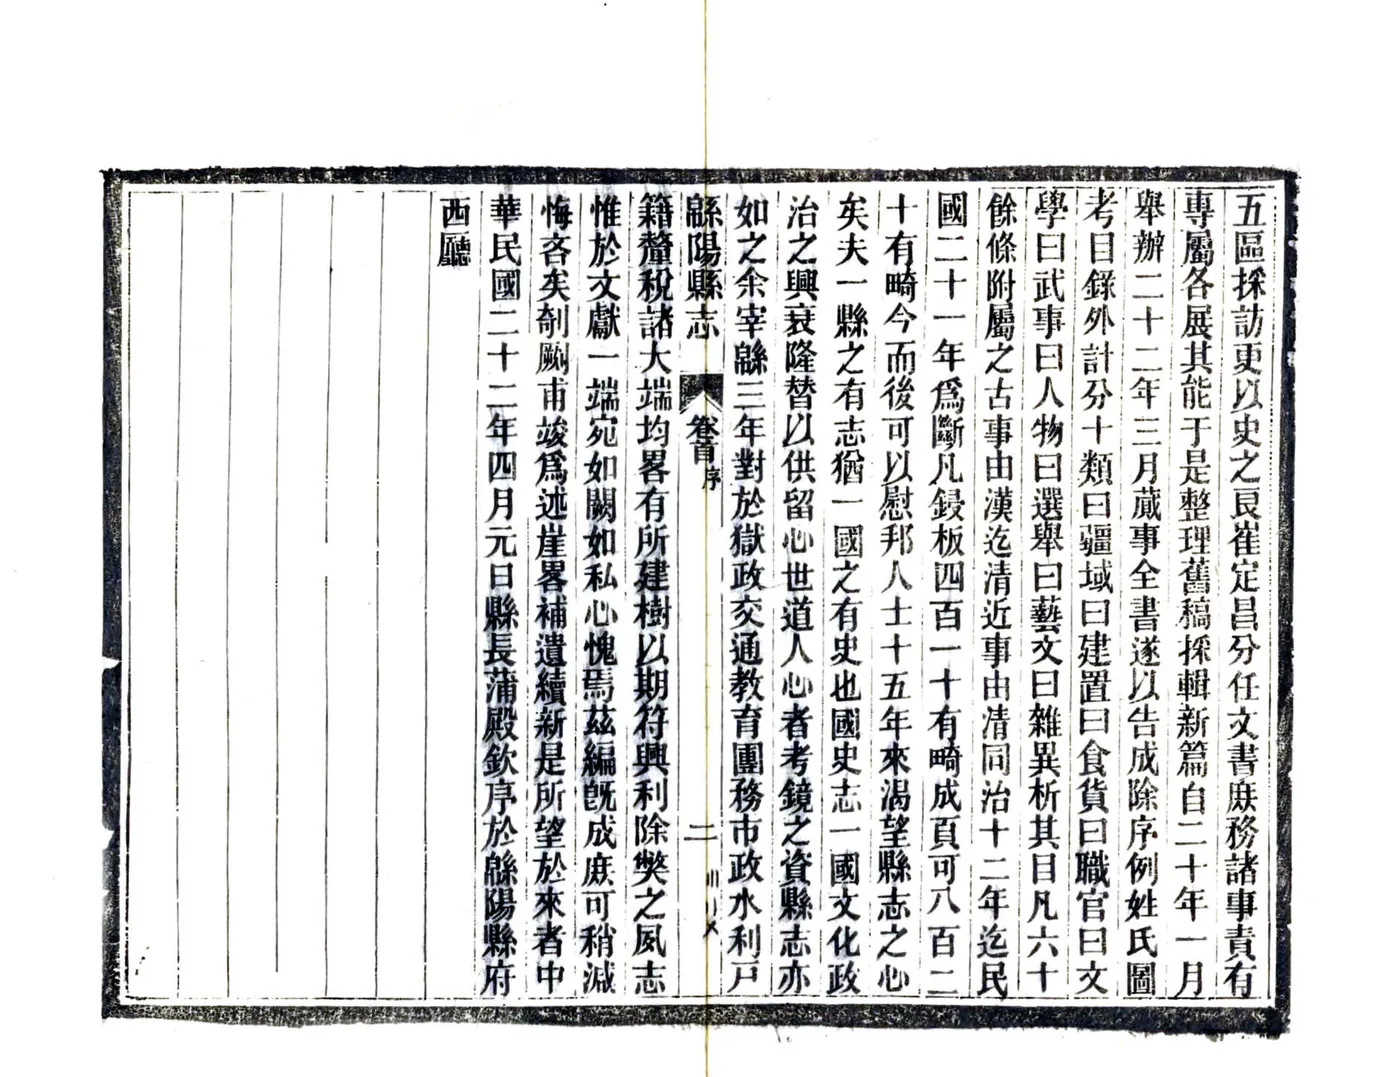 五區採訪更以史之良崔定昌分任文書庶務諸事責有
專屬各展其能于是整理舊稿採輯新篇自二十年一月
舉辦二十二年三月蕆事全書遂以告成除序例姓氏圖
考目錄外計分十類曰疆域曰建置曰食貨曰職官曰文
學曰武事曰人物曰選舉曰藝文曰雜異析其目凡六十
餘條附屬之古事由漢迄清近事由清同治十二年迄民
國二十一年爲斷凡鋟板四百一十有畸成頁可八百二
十有畸今而後可以慰邦人士十五年來渴望縣志之心
矣夫一縣之有志猶一國之有史也國史志一國文化政
治之興衰隆替以供留心世道人心者考鏡之資縣志亦
如之余宰緜三年對於獄政交通教育團務市政水利戸
緜陽縣志 卷首 序 二
籍釐稅諸大端均畧有所建樹以期符興利除獘之夙志
惟於文獻一端宛如闕如私心愧焉茲編旣成庶可稍減
悔吝矣剞劂甫竣爲述崖畧補遺續新是所望於來者中
華民國二十二年四月元日縣長蒲殿欽序於緜陽縣府
西廳